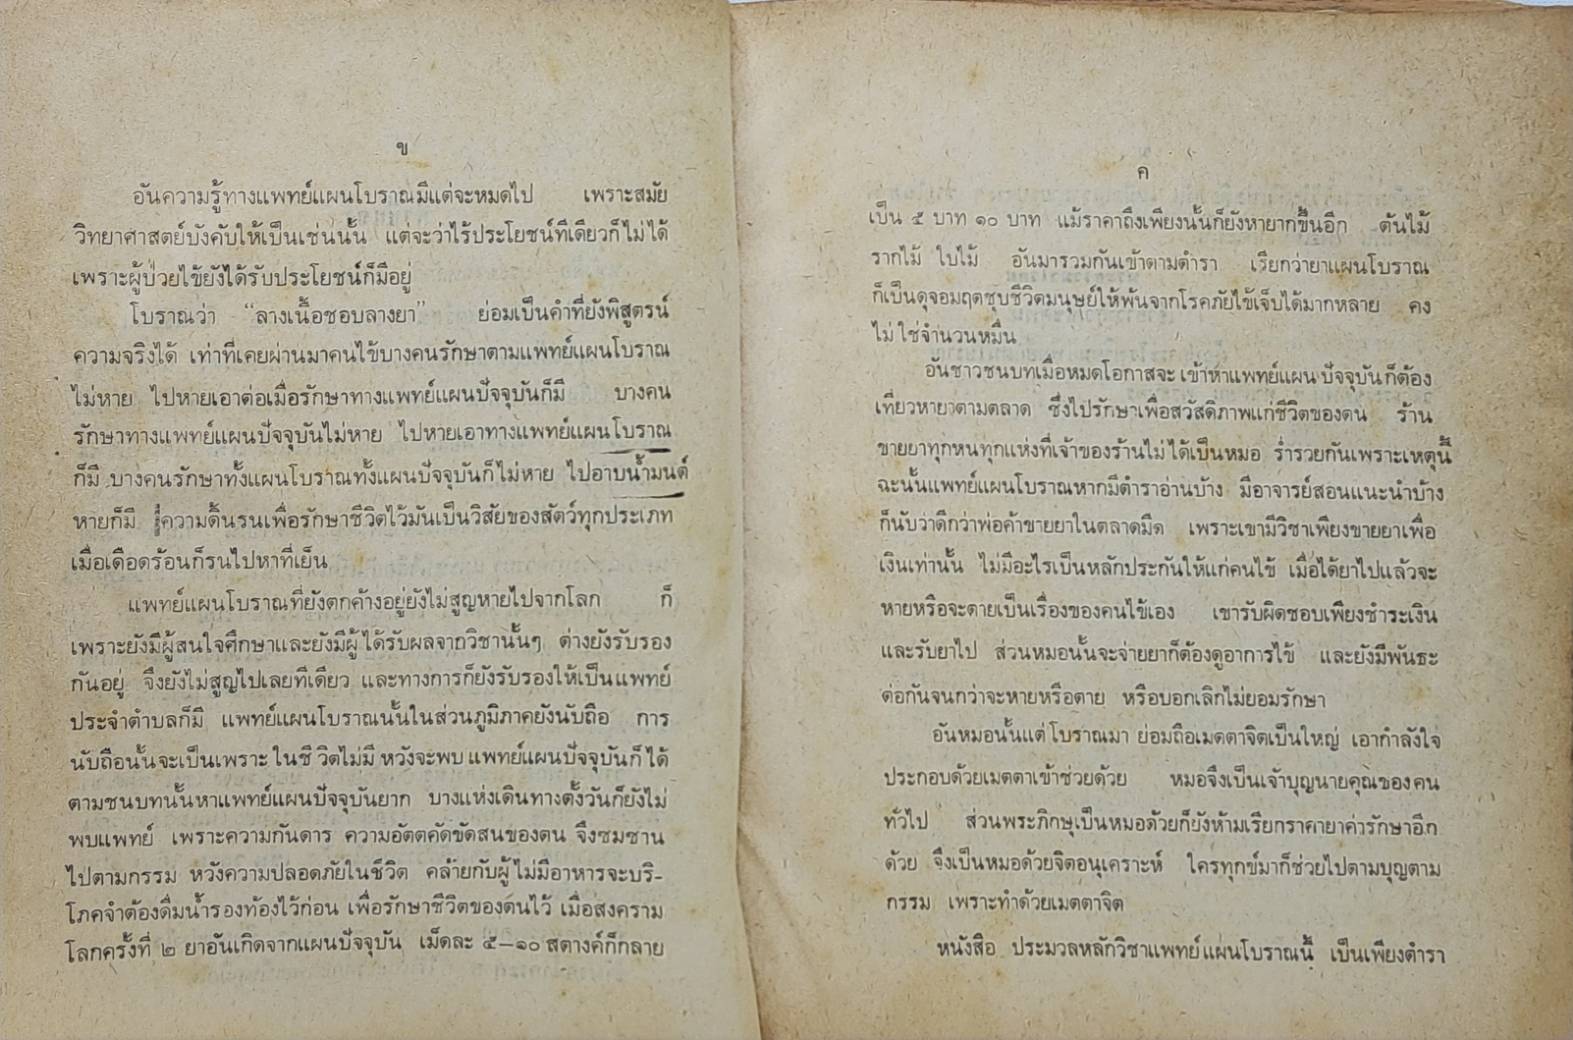 ข
อันความรู้ทางแพทย์แผนโบราณมีแต่จะหมดไป เพราะสมัย
วิทยาศาสตย์บังคับให้เป็นเช่นนั้น แต่จะว่าไร้ประโยชน์ทีเดียวก็ไม่ได้
เพราะผู้ป่วยไข้ยังได้รับประโยชน์ก็มีอยู่
โบราณว่า “ลางเนื้อชอบลางยา” ย่อมเป็นคำที่ยังพิสูตรน์
ความจริงได้ เท่าที่เคยผ่านมาคนไข้บางคนรักษาตามแพทย์แผนโบราณ
ไม่หาย ไปหายเอาต่อเมื่อรักษาทางแพทย์แผนปัจจุบันก็มี บางคน
รักษาทางแพทย์แผนปัจจุบันไม่หาย ไปหายเอาทางแพทย์แผนโบราณ
ก็มี บางคนรักษาทั้งแผนโบราณทั้งแผนปัจจุบันก็ไม่หาย ไปอาบน้ำมนต์
หายก็มี ความดิ้นรนเพื่อรักษาชีวิตไว้มันเป็นวิสัยของสัตว์ทุกประเภท
เมื่อเดือดร้อนก็รนไปหาที่เย็น
แพทย์แผนโบราณที่ยังตกค้างอยู่ยังไม่สูญหายไปจากโลก ก็
เพราะยังมีผู้สนใจศึกษาและยังมีผู้ได้รับผลจากวิชานั้นๆ ต่างยังรับรอง
กันอยู่ จึงยังไม่สูญไปเลยทีเดียว และทางการก็ยังรับรองให้เป็นแพทย์
ประจำตำบลก็มี แพทย์แผนโบราณนั้นในส่วนภูมิภาคยังนับถือ การ
นับถือนั้นจะเป็นเพราะในชีวิตไม่มีหวังจะพบแพทย์แผนปัจจุบันก็ได้
ตามชนบทนั้นหาแพทย์แผนปัจจุบันยาก บางแห่งเดินทางตั้งวันก็ยังไม่
พบแพทย์ เพราะความกันดาร ความอัตตคัดขัดสนของตน จึงซมซาน
ไปตามกรรม หวังความปลอดภัยในชีวิต คล้ายกับผู้ไม่มีอาหารจะบริ-
โภคจำต้องดื่มน้ำรองท้องไว้ก่อน เพื่อรักษาชีวิตของตนไว้ เมื่อสงคราม
โลกครั้งที่ ๒ ยาอันเกิดจากแผนปัจจุบัน เม็ดละ ๕—๑๐ สตางค์ก็กลาย
ค
เป็น ๕ บาท ๑๐ บาท แม้ราคาถึงเพียงนั้นก็ยังหายากขึ้นอีก ต้นไม้
รากไม้ ใบไม้ อันมารวมกันเข้าตามตำรา เรียกว่ายาแผนโบราณ
ก็เป็นดุจอมฤตชุบชีวิตมนุษย์ให้พ้นจากโรคภัยไข้เจ็บได้มากหลาย คง
ไม่ใช่จำนวนหมื่น
อันชาวชนบทเมื่อหมดโอกาสจะเข้าหาแพทย์แผนปัจจุบันก็ต้อง
เที่ยวหายาตามตลาด ซึ่งไปรักษาเพื่อสวัสดิภาพแก่ชีวิตของตน ร้าน
ขายยาทุกหนทุกแห่งที่เจ้าของร้านไม่ได้เป็นหมอ ร่ำรวยกันเพราะเหตุนี้
ฉะนั้นแพทย์แผนโบราณหากมีตำราอ่านบ้าง มีอาจารย์สอนแนะนำบ้าง
ก็นับว่าดีกว่าพ่อค้าขายยาในตลาดมืด เพราะเขามีวิชาเพียงขายยาเพื่อ
เงินเท่านั้น ไม่มีอะไรเป็นหลักประกันให้แก่คนไข้ เมื่อได้ยาไปแล้วจะ
หายหรือจะตายเป็นเรื่องของคนไข้เอง เขารับผิดชอบเพียงชำระเงิน
และรับยาไป ส่วนหมอนั้นจะจ่ายยาก็ต้องดูอาการไข้ และยังมีพันธะ
ต่อกันจนกว่าจะหายหรือตาย หรือบอกเลิกไม่ยอมรักษา
อันหมอนั้นแต่โบราณมา ย่อมถือเมตตาจิตเป็นใหญ่ เอากำลังใจ
ประกอบด้วยเมตตาเข้าช่วยด้วย หมอจึงเป็นเจ้าบุญนายคุณของคน
ทั่วไป ส่วนพระภิกษุเป็นหมอด้วยก็ยังห้ามเรียกราคายาค่ารักษาอีก
ด้วย จึงเป็นหมอด้วยจิตอนุเคราะห์ ใครทุกข์มาก็ช่วยไปตามบุญตาม
กรรม เพราะทำด้วยเมตตาจิต
หนังสือ ประมวลหลักวิชาแพทย์แผนโบราณนี้ เป็นเพียงตำรา